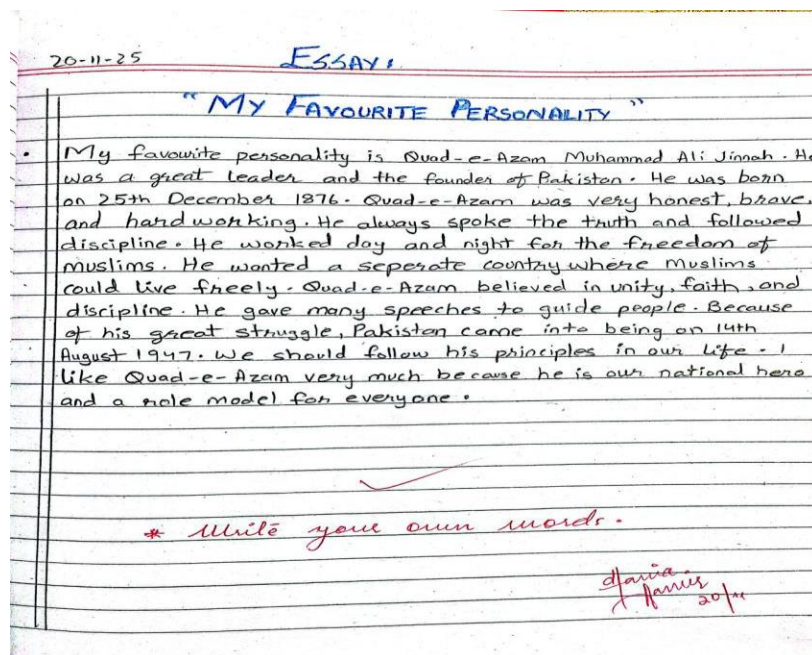 20-11-25
ESSAY:
"MY FAVOURITE PERSONALITY"
My favourite personality is Quad-e-Azam Muhammad Ali Jinnah. He
was a great leader and the founder of Pakistan. He was born
on 25th December 1876. Quad-e-Azam was very honest, brave,
and hardworking. He always spoke the truth and followed
discipline. He worked day and night for the freedom of
muslims. He wanted a seperate country where Muslims
could live freely. Quad-e-Azam believed in unity, faith, and
discipline. He gave many speeches to guide people. Because
of his great struggle, Pakistan came into being on 14th
August 1947. We should follow his principles in our life. I
like Quad-e-Azam very much because he is our national hero
and a role model for everyone.
* Write your own words.
20/11